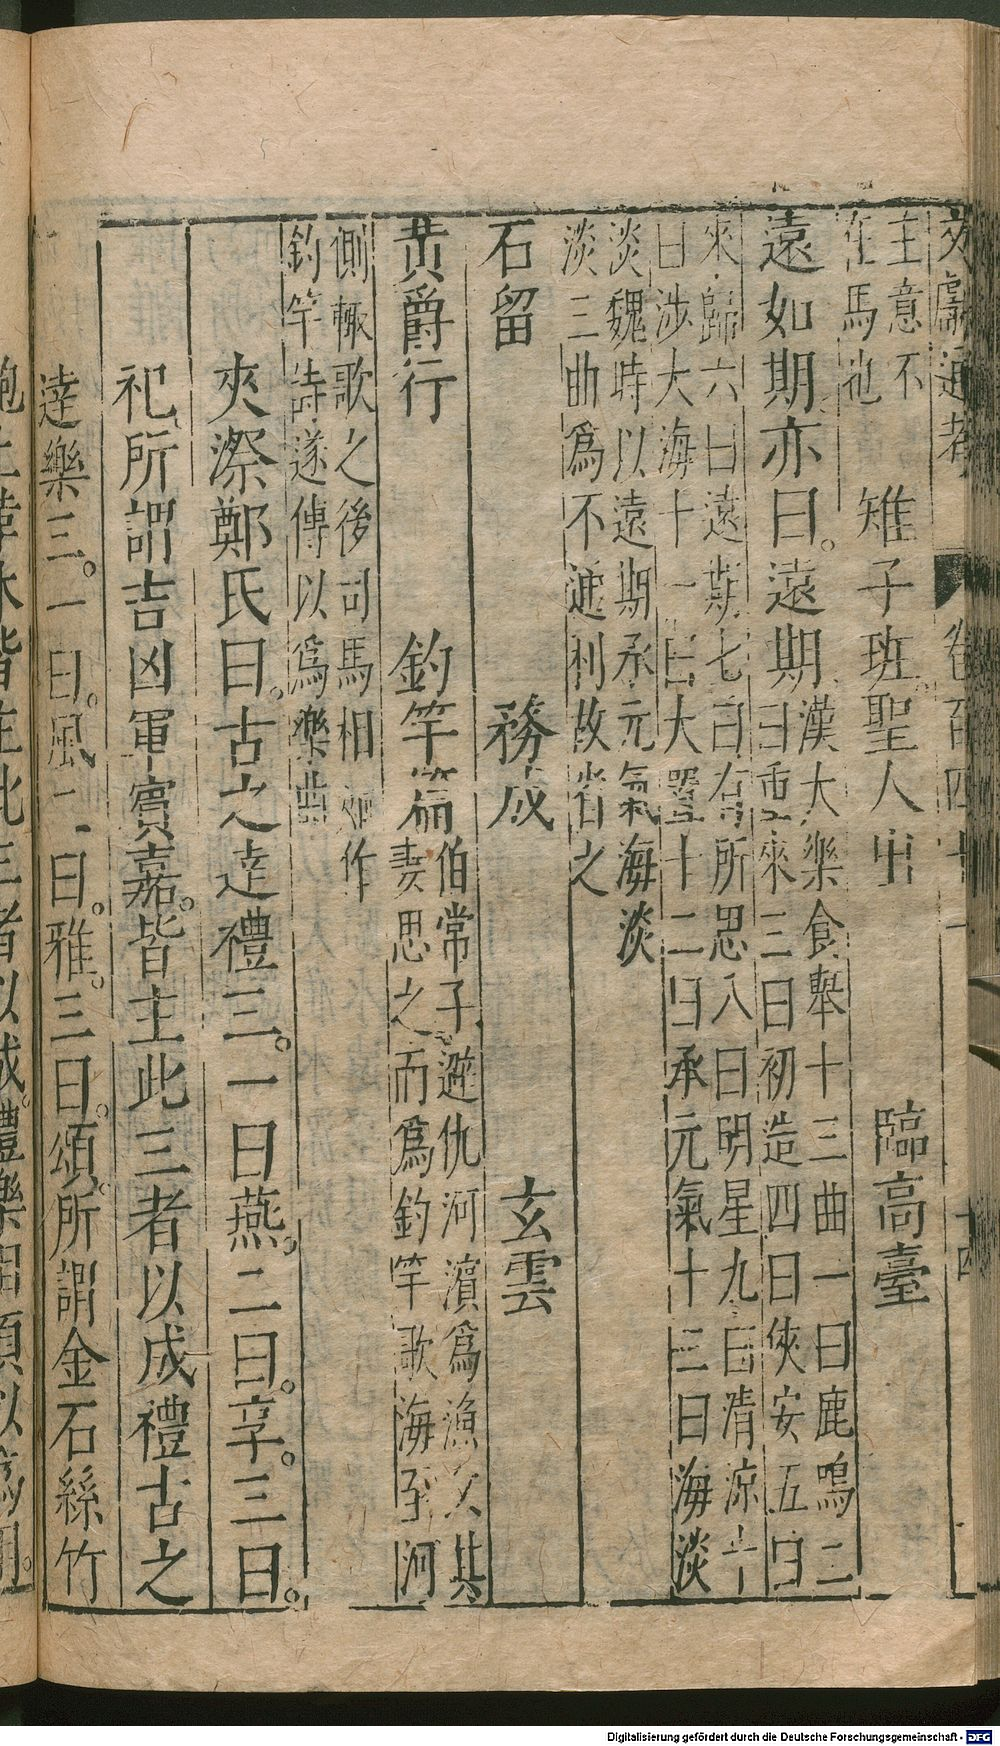 文獻通考　卷百四十一　十四
主意不
在馬也　雉子班　聖人出　臨高臺
遠如期亦曰遠期
漢大樂食舉十三曲一曰鹿鳴二
曰重來三曰初造四曰俠安五曰
來歸六曰遠期七曰有所思八曰明星九曰清涼十
曰涉大海十一曰大置十二曰承元氣十三曰海淡
淡魏時以遠期承元氣海淡
淡三曲爲不逓利故省之
石留　務成　玄雲
黃爵行　釣竿篇
伯常子避仇河濱爲漁父其
妻思之而爲釣竿歌海至河
側輙歌之後司馬相如作
釣竿詩遂傳以爲樂曲
夾漈鄭氏曰古之達禮三一曰燕二曰享三曰
祀所謂吉凶軍賓嘉皆主此三者以成禮古之
達樂三一曰風二曰雅三曰頌所謂金石絲竹
匏土革木皆主此三者以成禮樂相須以爲用
Digitalisierung gefördert durch die Deutsche Forschungsgemeinschaft - DFG